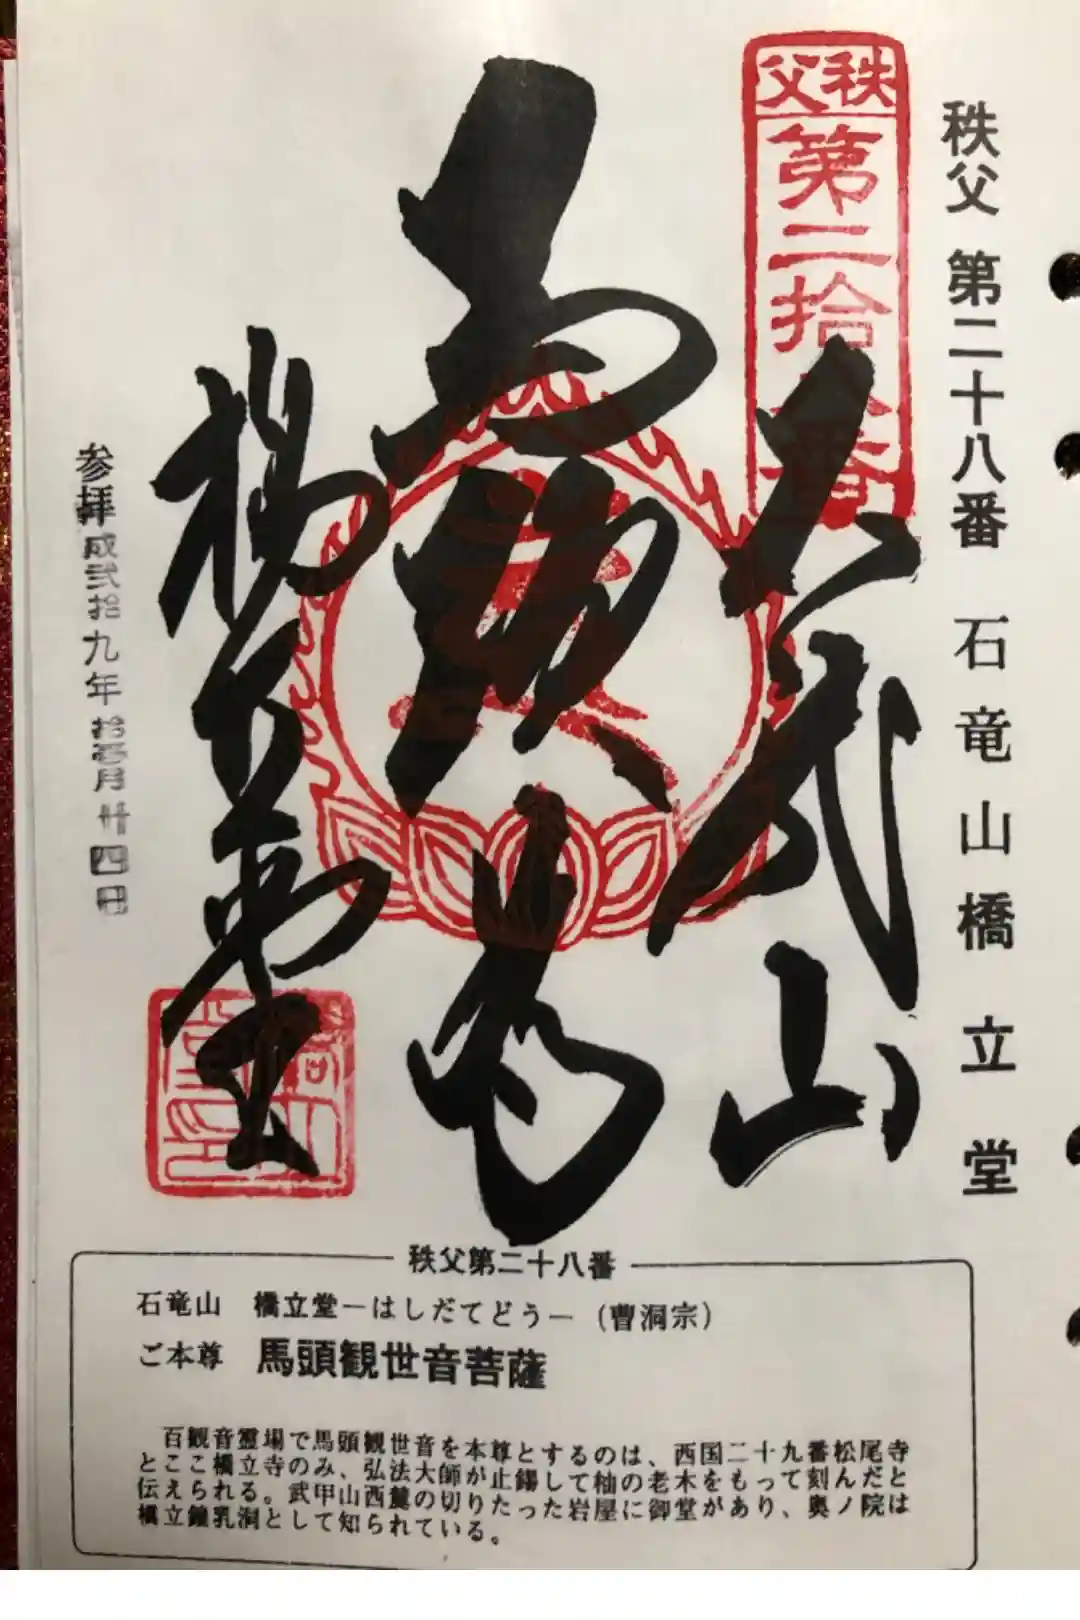 秩父 第二十八番 石竜山橋立堂
秩父
第二拾八番
石龍山
馬頭尊
橋立堂
参拝成弐拾九年拾壱月廿四日
秩父第二十八番
石竜山 橋立堂－はしだてどう－（曹洞宗）
ご本尊 馬頭観世音菩薩
百観音霊場で馬頭観世音を本尊とするのは、西国二十九番松尾寺
とここ橋立寺のみ、弘法大師が止錫して柚の老木をもって刻んだと
伝えられる。武甲山西麓の切りたった岩屋に御堂があり、奥ノ院は
橋立鐘乳洞として知られている。